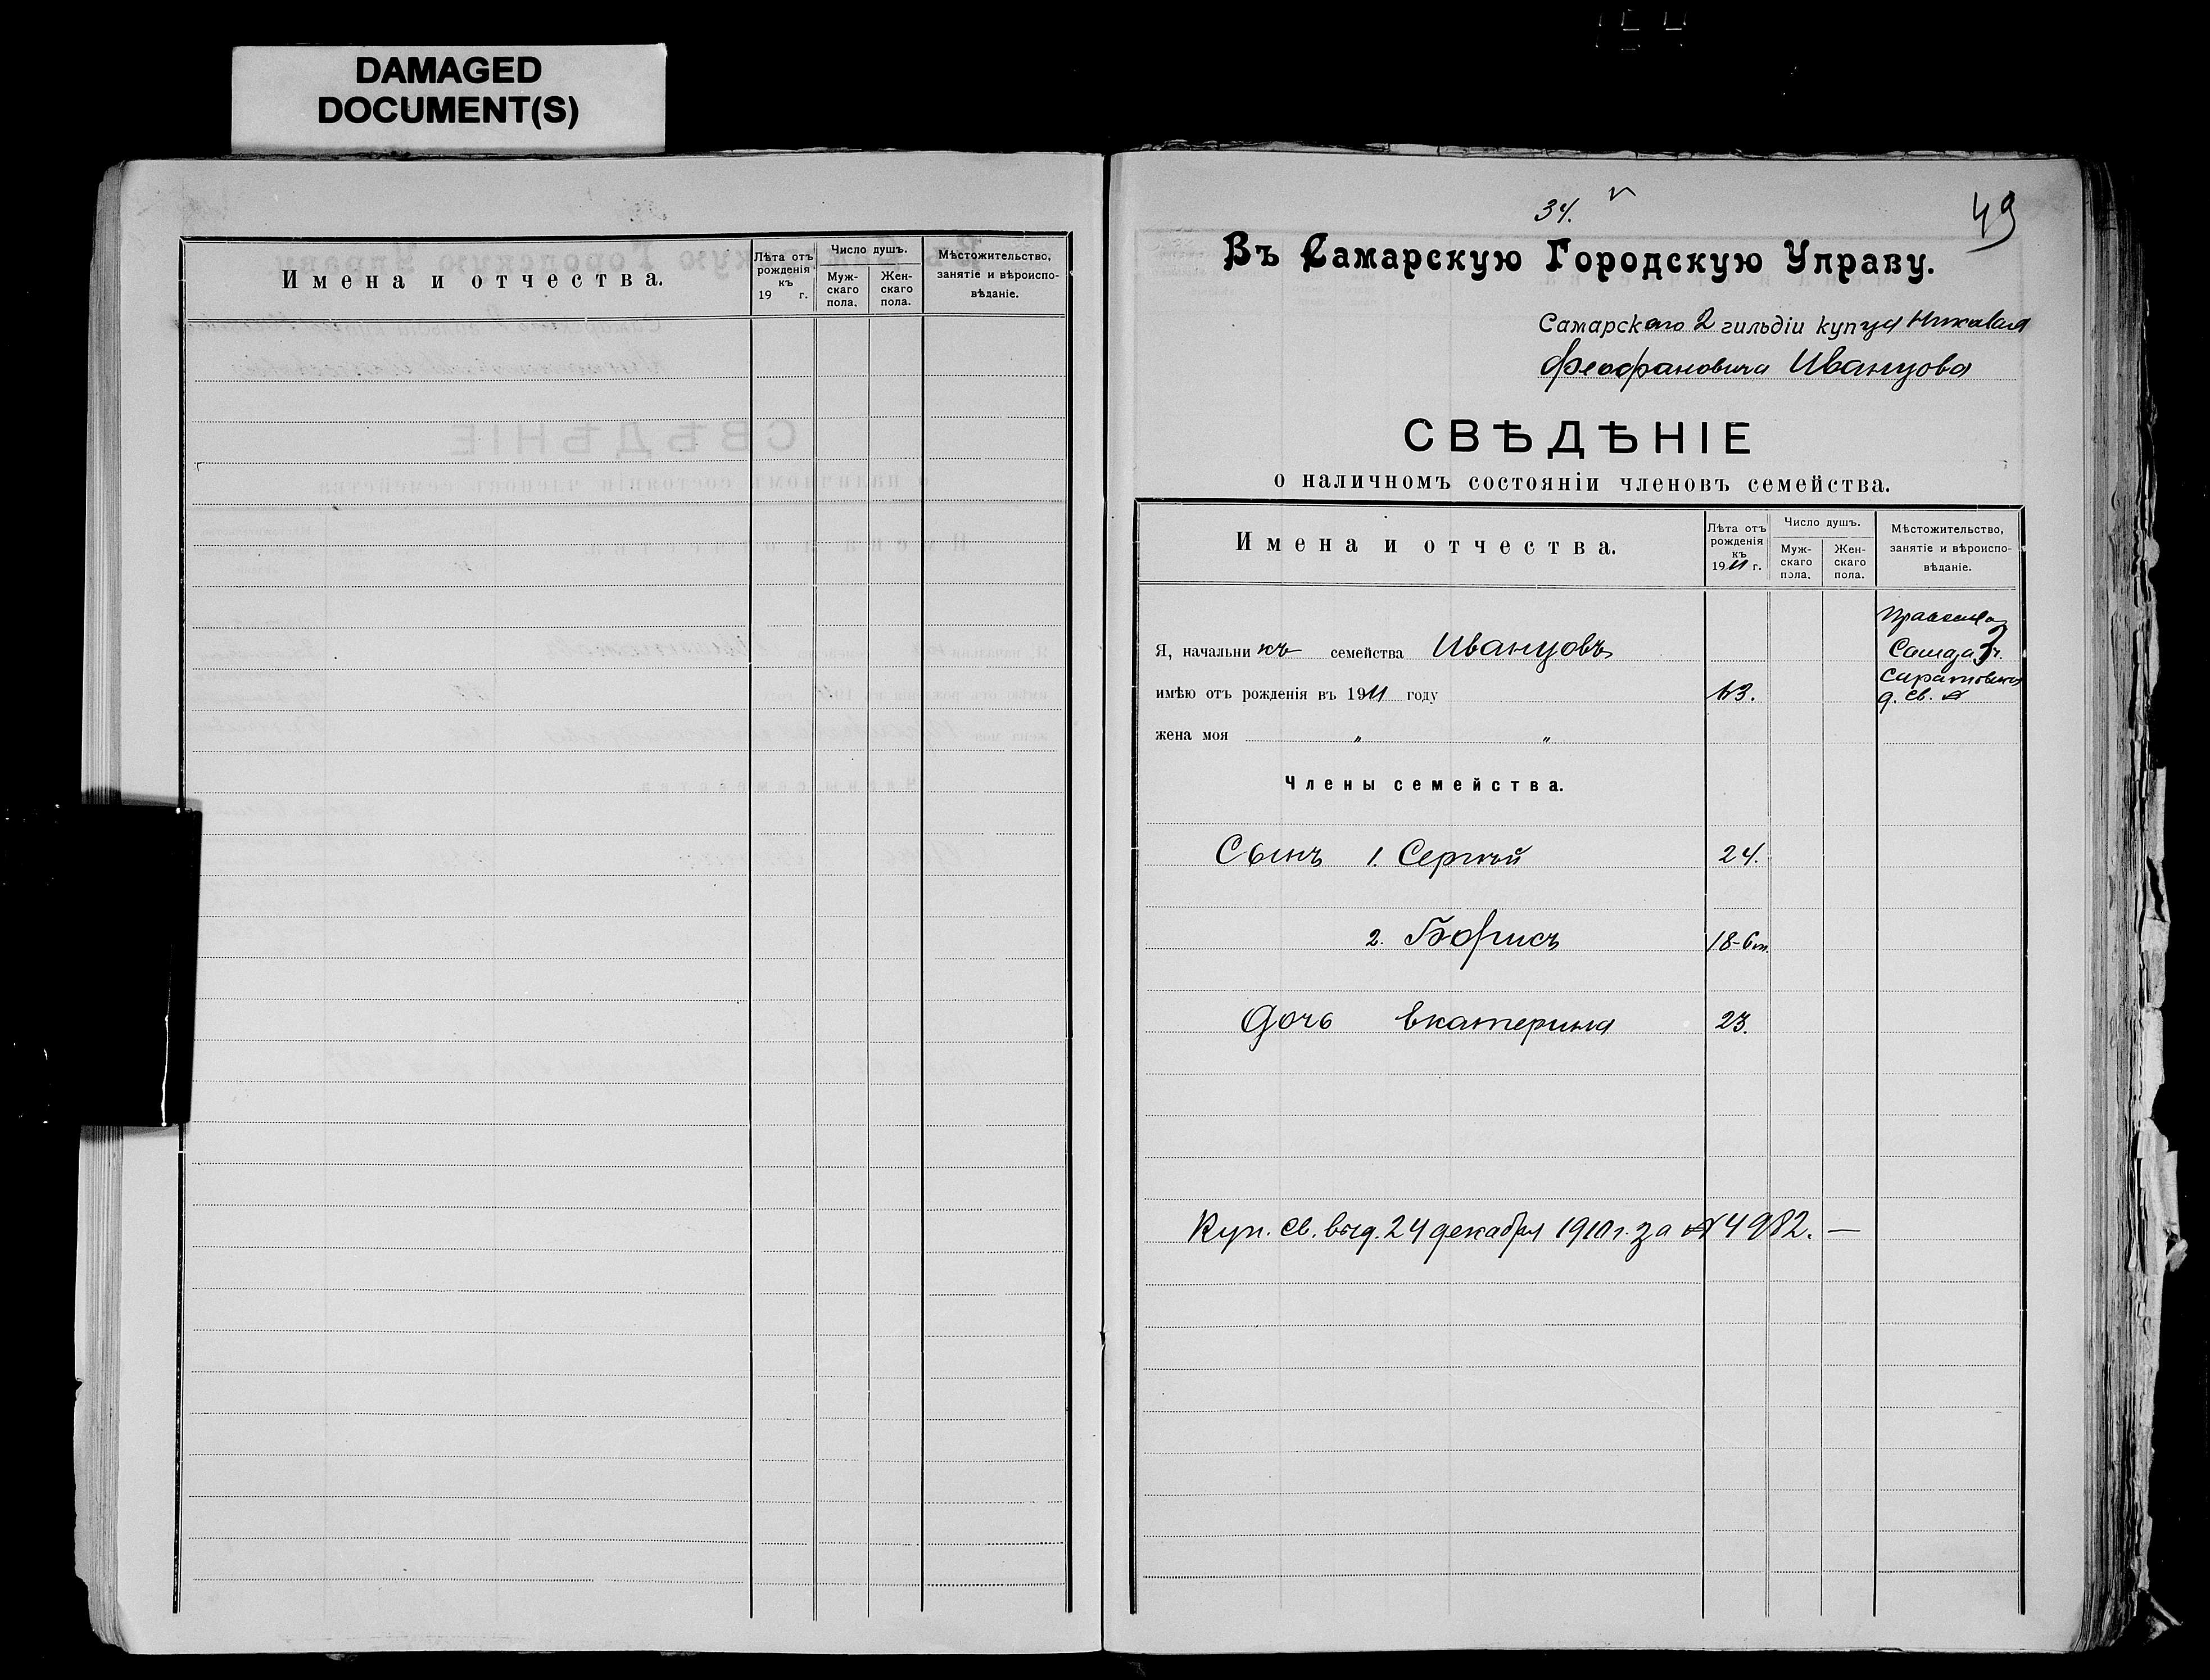 DAMAGED
DOCUMENT(S)
Имена и отчества.
Лѣта отъ рожденія къ 19 г.
Число душъ.
Муж-скаго пола.
Жен-скаго пола.
Мѣстожительство, занятіе и вѣроиспо-вѣданіе.
34.
49
Въ Самарскую Городскую Управу.
Самарскаго 2 гильдіи купца Николая
Феофановича Иванцова
СВѢДѢНІЕ
о наличномъ состояніи членовъ семейства.
Имена и отчества.
Лѣта отъ рожденія къ 1911 г.
Число душъ.
Муж-скаго пола.
Жен-скаго пола.
Мѣстожительство, занятіе и вѣроиспо-вѣданіе.
Я, начальникъ семейства Иванцовъ
имѣю отъ рожденія въ 1911 году
д. св.
жена моя " "
Члены семейства.
Сынъ 1. Сергѣй 24.
2. Борисъ 18-6 м.
Дочь Екатерина 23.
Куп. св. выд. 24 декабря 1910 г. за № 4982. —